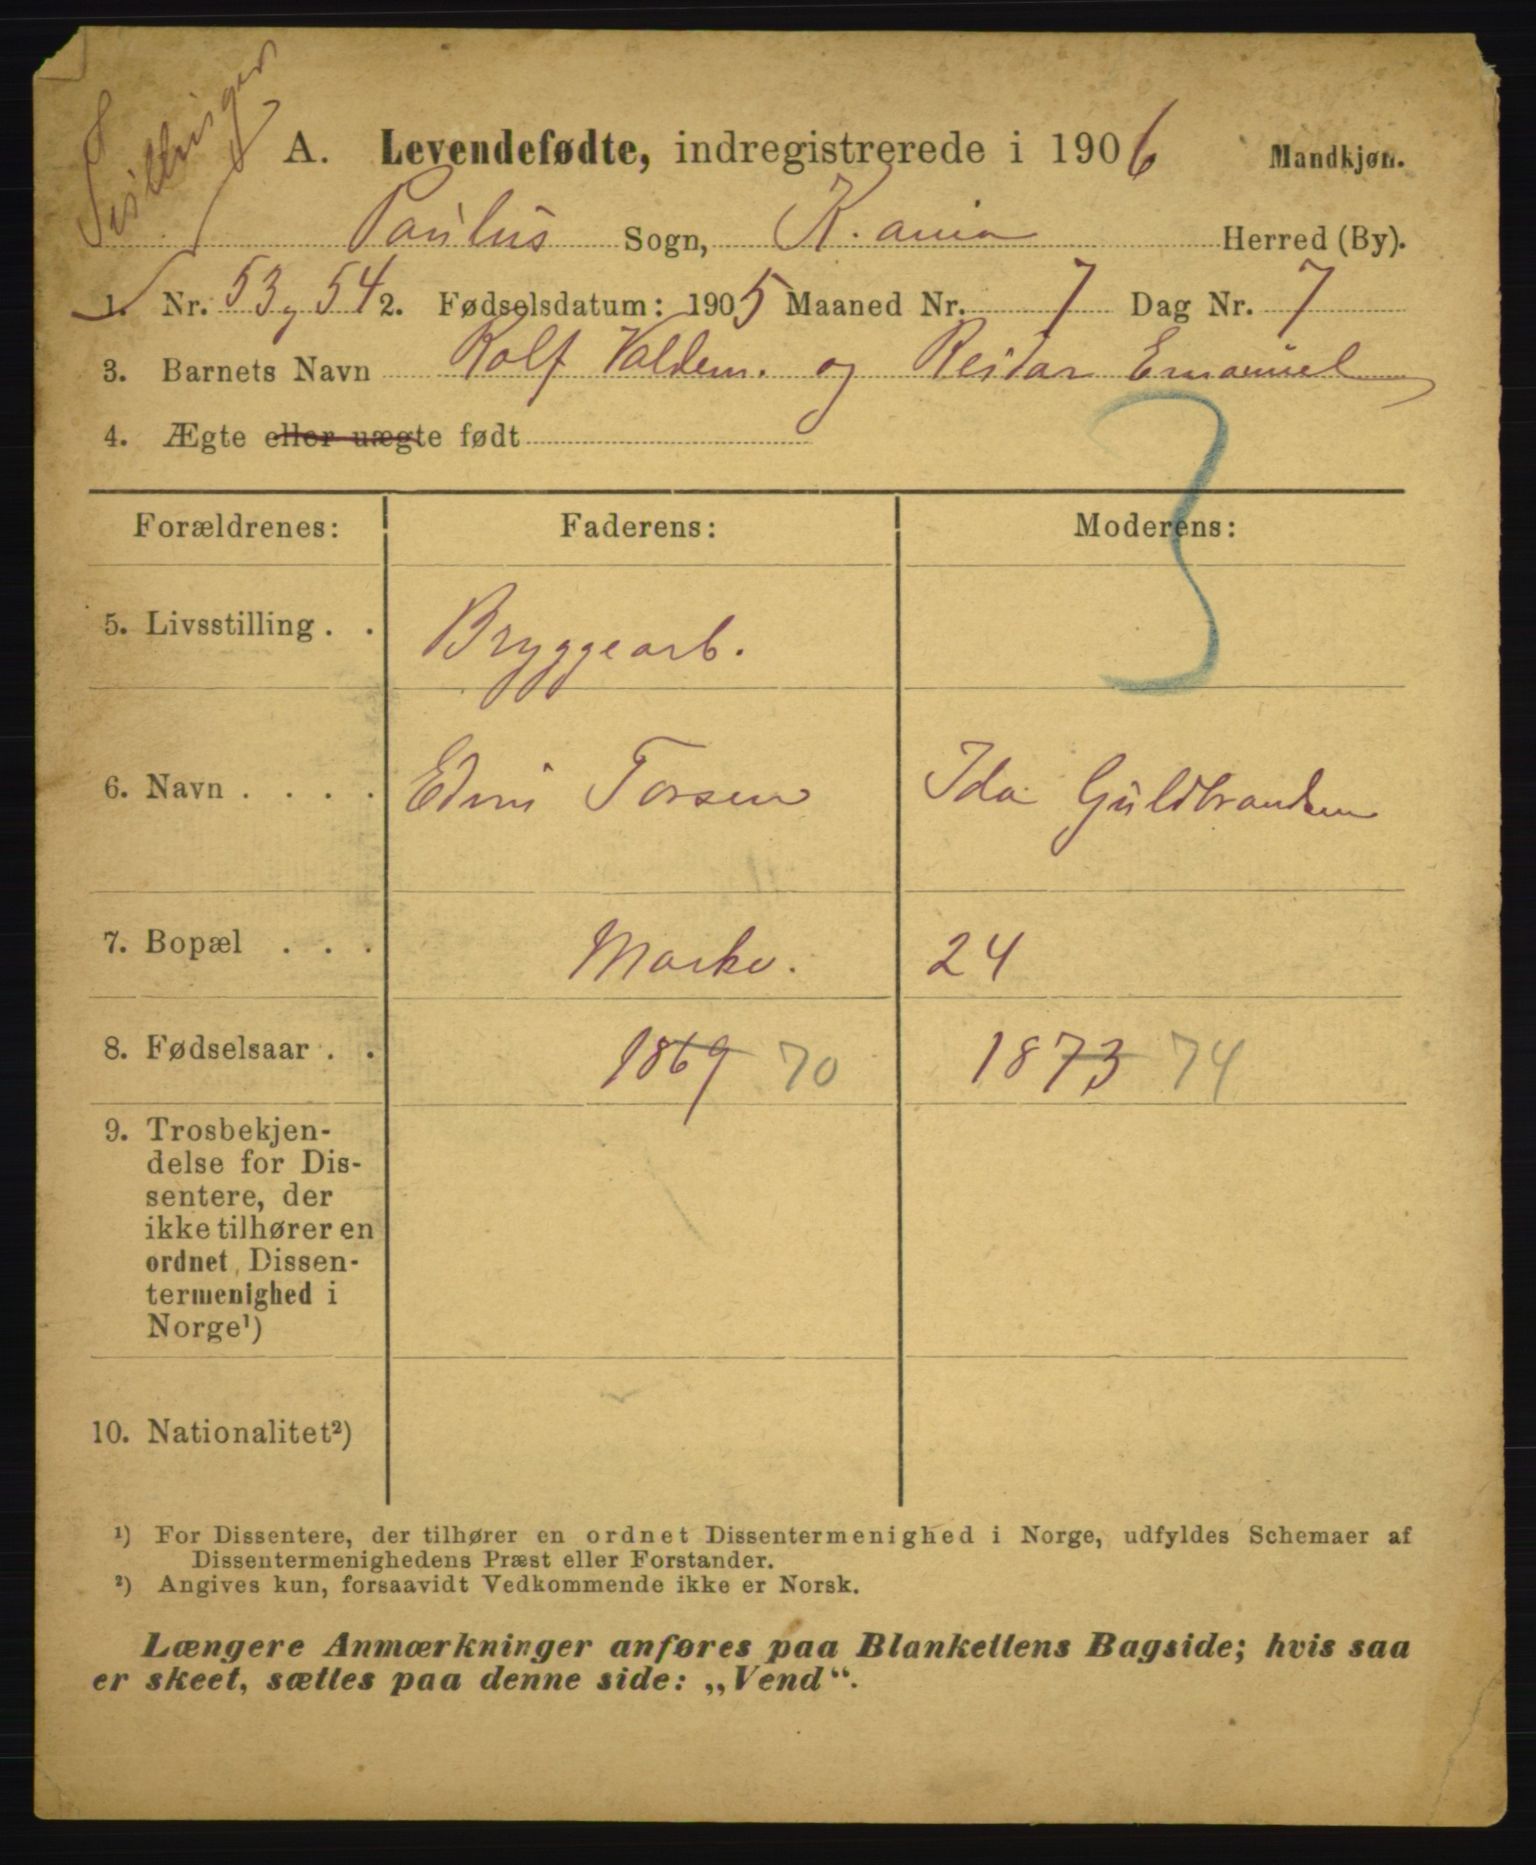 Tvillinger
A. Levendefødte, indregistrerede i 1906 Mandkjøn.
Paulus Sogn, K.ania Herred (By).
1. Nr. 53 og 54 2. Fødselsdatum: 1905 Maaned Nr. 7 Dag Nr. 7
3. Barnets Navn Rolf Valdem. og Reidar Emanuel
4. Ægte eller uægte født
3
Forældrenes: Faderens: Moderens:
5. Livsstilling . . Bryggearb.
6. Navn . . . . Edvin Torsen Ida Guldbrandsen
7. Bopæl . . . Markv. 24
8. Fødselsaar . . 1869 70 1873 74
9. Trosbekjen-
delse for Dis-
sentere, der
ikke tilhører en
ordnet Dissen-
termenighed i
Norge¹)
10. Nationalitet²)
¹) For Dissentere, der tilhører en ordnet Dissentermenighed i Norge, udfyldes Schemaer af
Dissentermenighedens Præst eller Forstander.
²) Angives kun, forsaavidt Vedkommende ikke er Norsk.
Længere Anmærkninger anføres paa Blankettens Bagside; hvis saa
er skeet, sættes paa denne side: „Vend“.